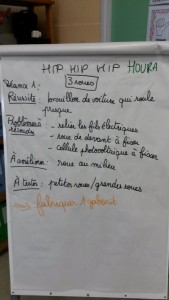 HIP HIP HIP HOURA
3 roues
Séance 1:
Réussite: brouillon de voiture qui roule
presque
Problèmes
résolus
- relier les fils électriques
- roue de devant à fixer
- cellule photovoltaïque à fixer
À améliorer: roue au milieu
À tester: petites roues/grandes roues
→ fabriquer 1 gabarit